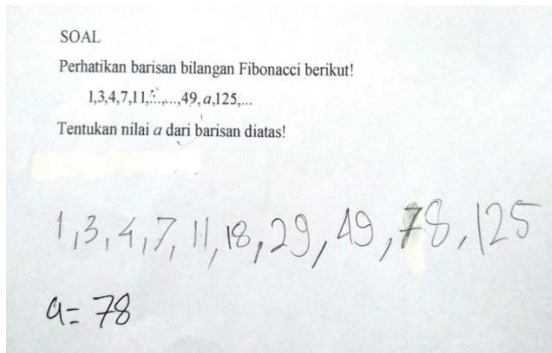 SOAL
Perhatikan barisan bilangan Fibonacci berikut!
1,3,4,7,11,...,...,49,a,125,...
Tentukan nilai a dari barisan diatas!
1,3,4,7,11,18,29,49,78,125
a= 78